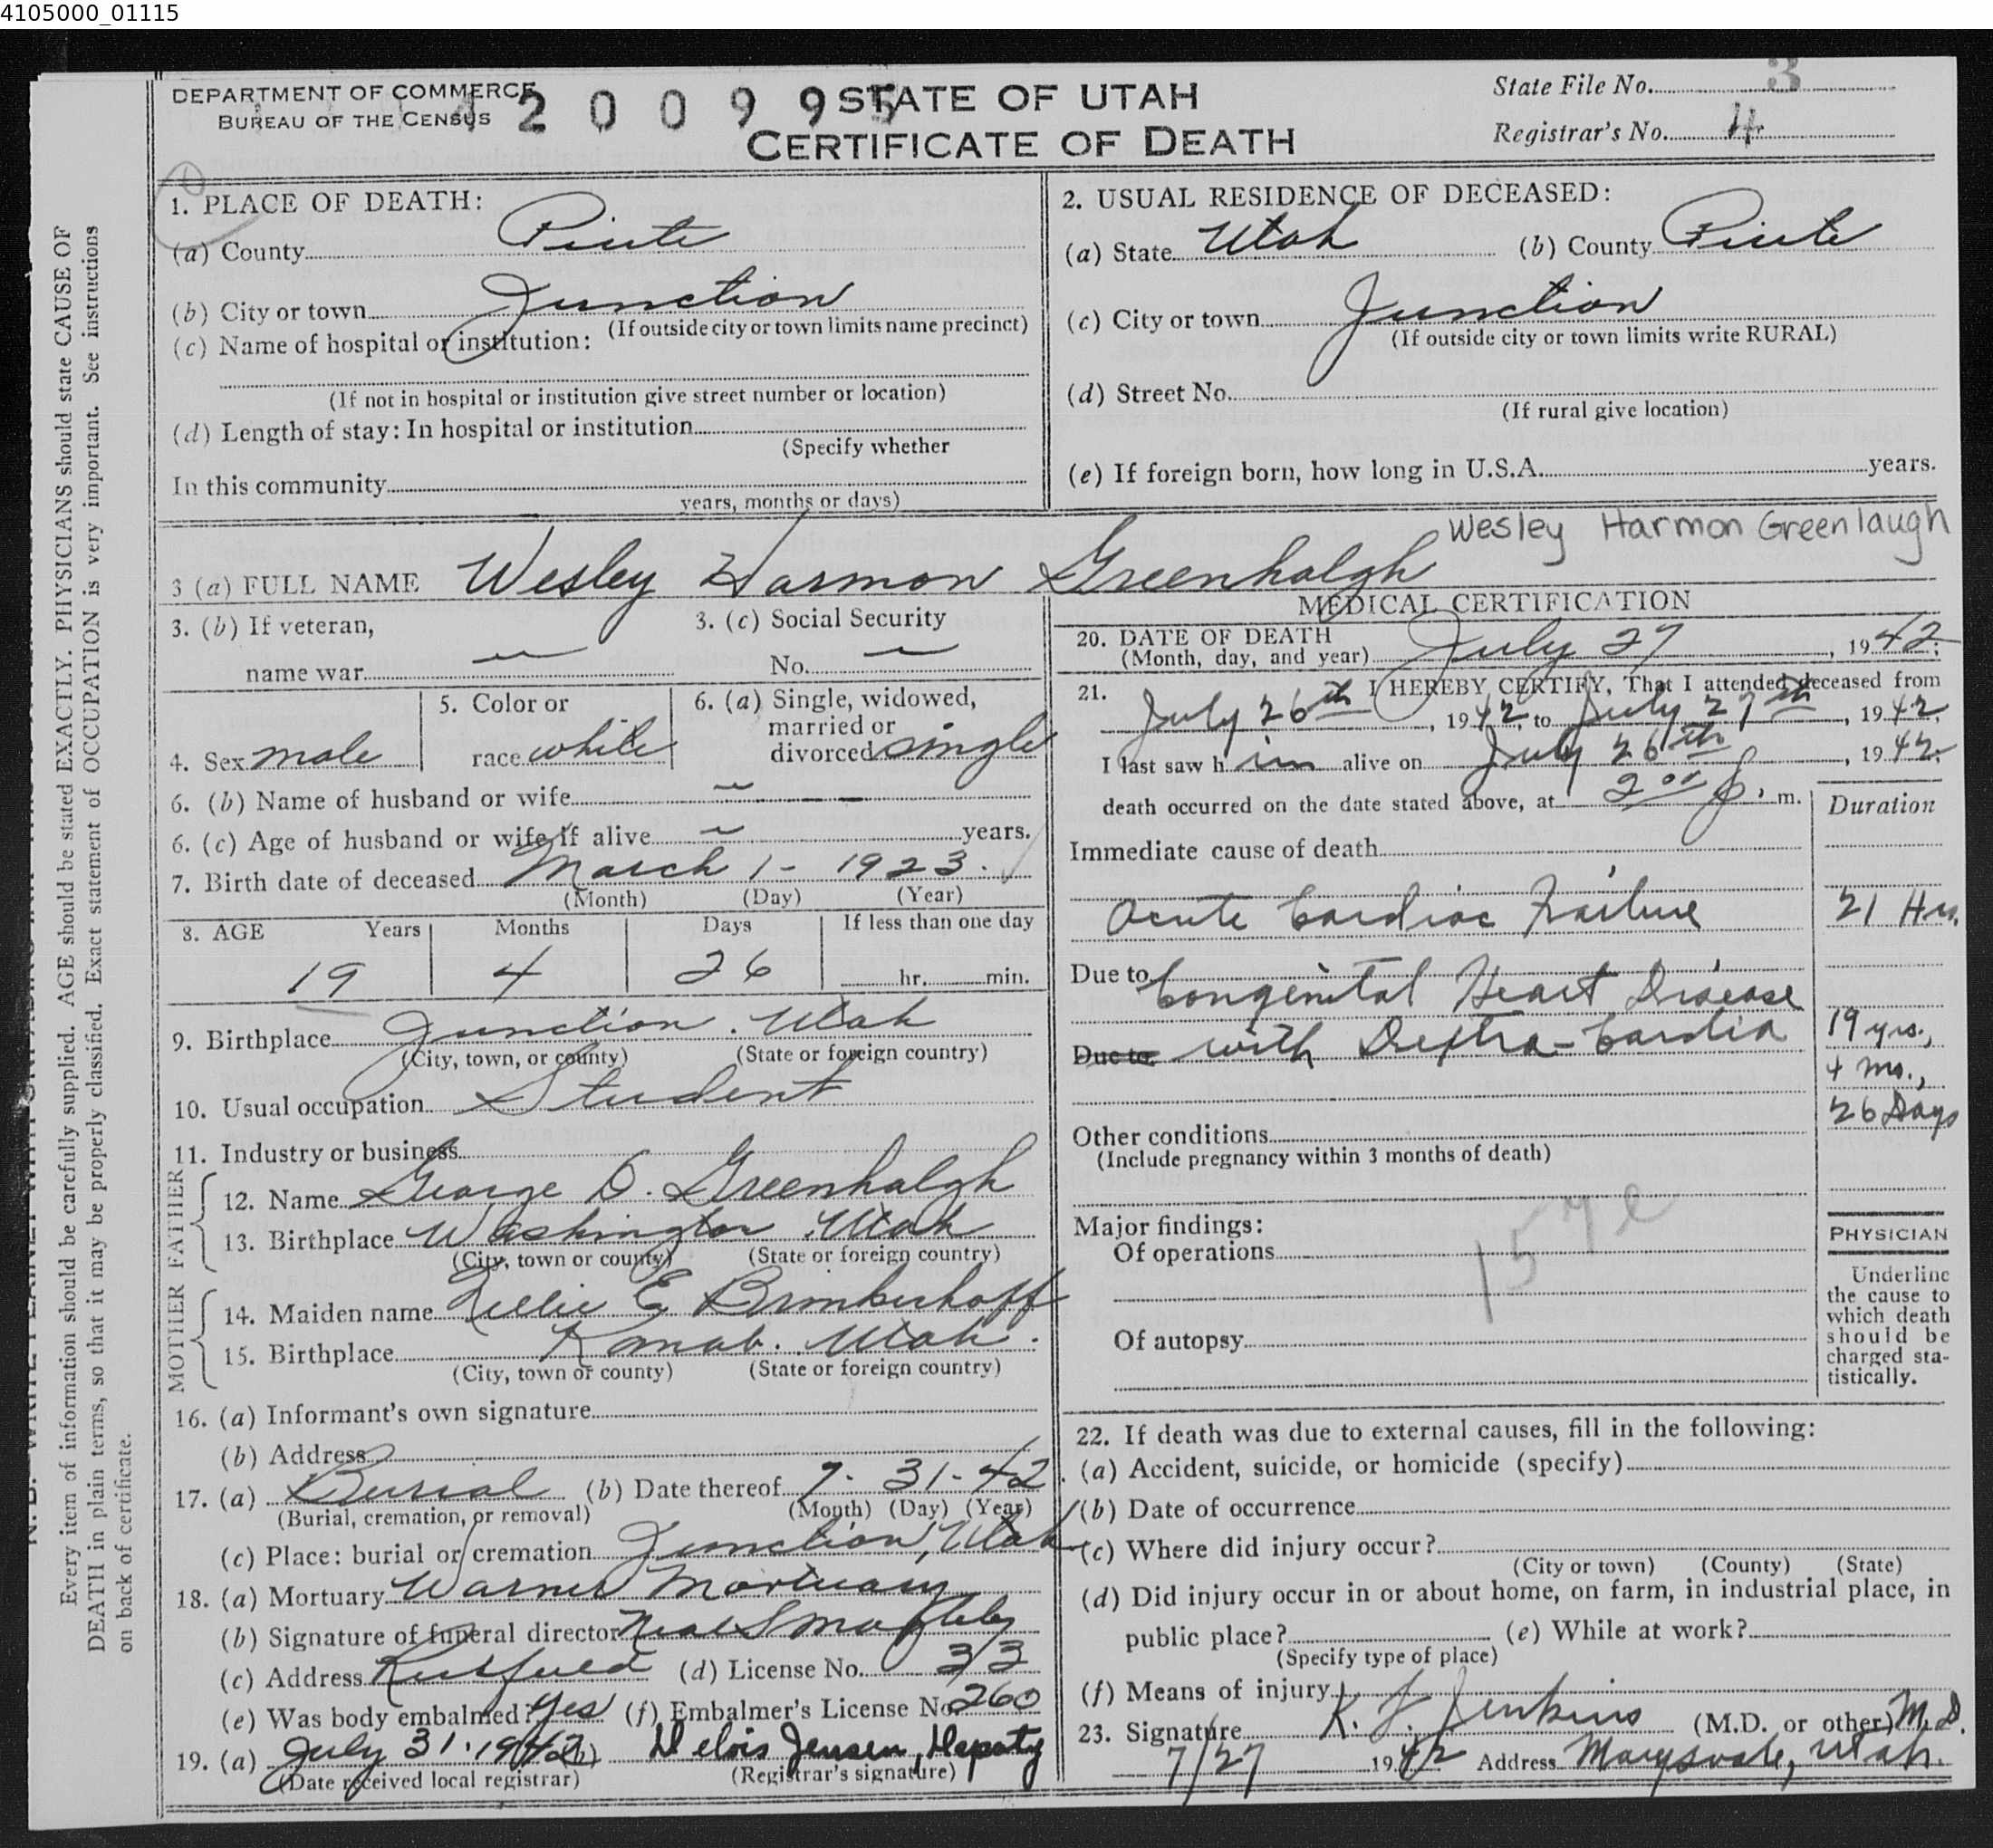 4105000_01115
DEPARTMENT OF COMMERCE
BUREAU OF THE CENSUS
4200995
STATE OF UTAH
CERTIFICATE OF DEATH
State File No. 3
Registrar's No. 4
1. PLACE OF DEATH:
(a) County Piute
(b) City or town Junction
(If outside city or town limits name precinct)
(c) Name of hospital or institution:
(If not in hospital or institution give street number or location)
(d) Length of stay: In hospital or institution
(Specify whether
In this community
years, months or days)
2. USUAL RESIDENCE OF DECEASED:
(a) State Utah (b) County Piute
(c) City or town Junction
(If outside city or town limits write RURAL)
(d) Street No.
(If rural give location)
(e) If foreign born, how long in U.S.A. years.
Wesley Harmon Greenlaugh
3 (a) FULL NAME Wesley Harmon Greenhalgh
3. (b) If veteran,
name war
3. (c) Social Security
No.
4. Sex male
5. Color or
race white
6. (a) Single, widowed,
married or
divorced single
6. (b) Name of husband or wife
6. (c) Age of husband or wife if alive years.
7. Birth date of deceased March 1 - 1923.
(Month) (Day) (Year)
8. AGE Years Months Days If less than one day
19 4 26 hr. min.
9. Birthplace Junction. Utah
(City, town, or county) (State or foreign country)
10. Usual occupation Student
11. Industry or business
FATHER
12. Name George D. Greenhalgh
13. Birthplace Washington Utah
(City, town or county) (State or foreign country)
MOTHER
14. Maiden name Nellie E Brinkerhoff
15. Birthplace Kanab. Utah.
(City, town or county) (State or foreign country)
16. (a) Informant's own signature
(b) Address
17. (a) Burial (b) Date thereof 7-31-42.
(Burial, cremation, or removal) (Month) (Day) (Year)
(c) Place: burial or cremation Junction, Utah
18. (a) Mortuary Warner Mortuary
(b) Signature of funeral director Neal S
(c) Address Richfield (d) License No. 33
(e) Was body embalmed? Yes (f) Embalmer's License No. 260
19. (a) July 31. 1942 (b) Delois Jensen, Deputy
(Date received local registrar) (Registrar's signature)
MEDICAL CERTIFICATION
20. DATE OF DEATH
(Month, day, and year) July 27, 1942.
21. I HEREBY CERTIFY, That I attended deceased from
July 26th, 1942, to July 27th, 1942.
I last saw him alive on July 26th, 1942.
death occurred on the date stated above, at 2 00 p. m.
Duration
Immediate cause of death
Acute Cardiac Failure 21 Hrs.
Due to Congenital Heart Disease
Due to with Dextra-Cardia 19 yrs.,
4 mo.,
26 Days
Other conditions
(Include pregnancy within 3 months of death)
Major findings:
Of operations
157e
Of autopsy
PHYSICIAN
Underline
the cause to
which death
should be
charged sta-
tistically.
22. If death was due to external causes, fill in the following:
(a) Accident, suicide, or homicide (specify)
(b) Date of occurrence
(c) Where did injury occur?
(City or town) (County) (State)
(d) Did injury occur in or about home, on farm, in industrial place, in
public place? (e) While at work?
(Specify type of place)
(f) Means of injury
23. Signature K. J. Jenkins (M.D. or other) M.D.
7/27 1942 Address Marysvale, Utah.
Every item of information should be carefully supplied. AGE should be stated EXACTLY. PHYSICIANS should state CAUSE OF
DEATH in plain terms, so that it may be properly classified. Exact statement of OCCUPATION is very important. See instructions
on back of certificate.